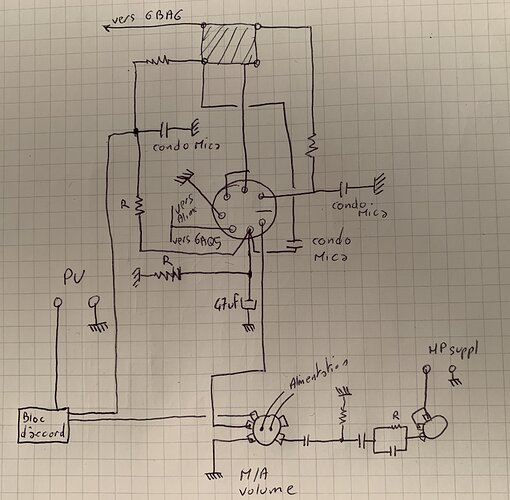 vers 6BA6
condo Mica
R
vers
Alim
vers 6AQ5
condo
Mica
condo
Mica
R
47uf
PU
HP suppl
Alimentation
R
Bloc
d'accord
M/A
volume